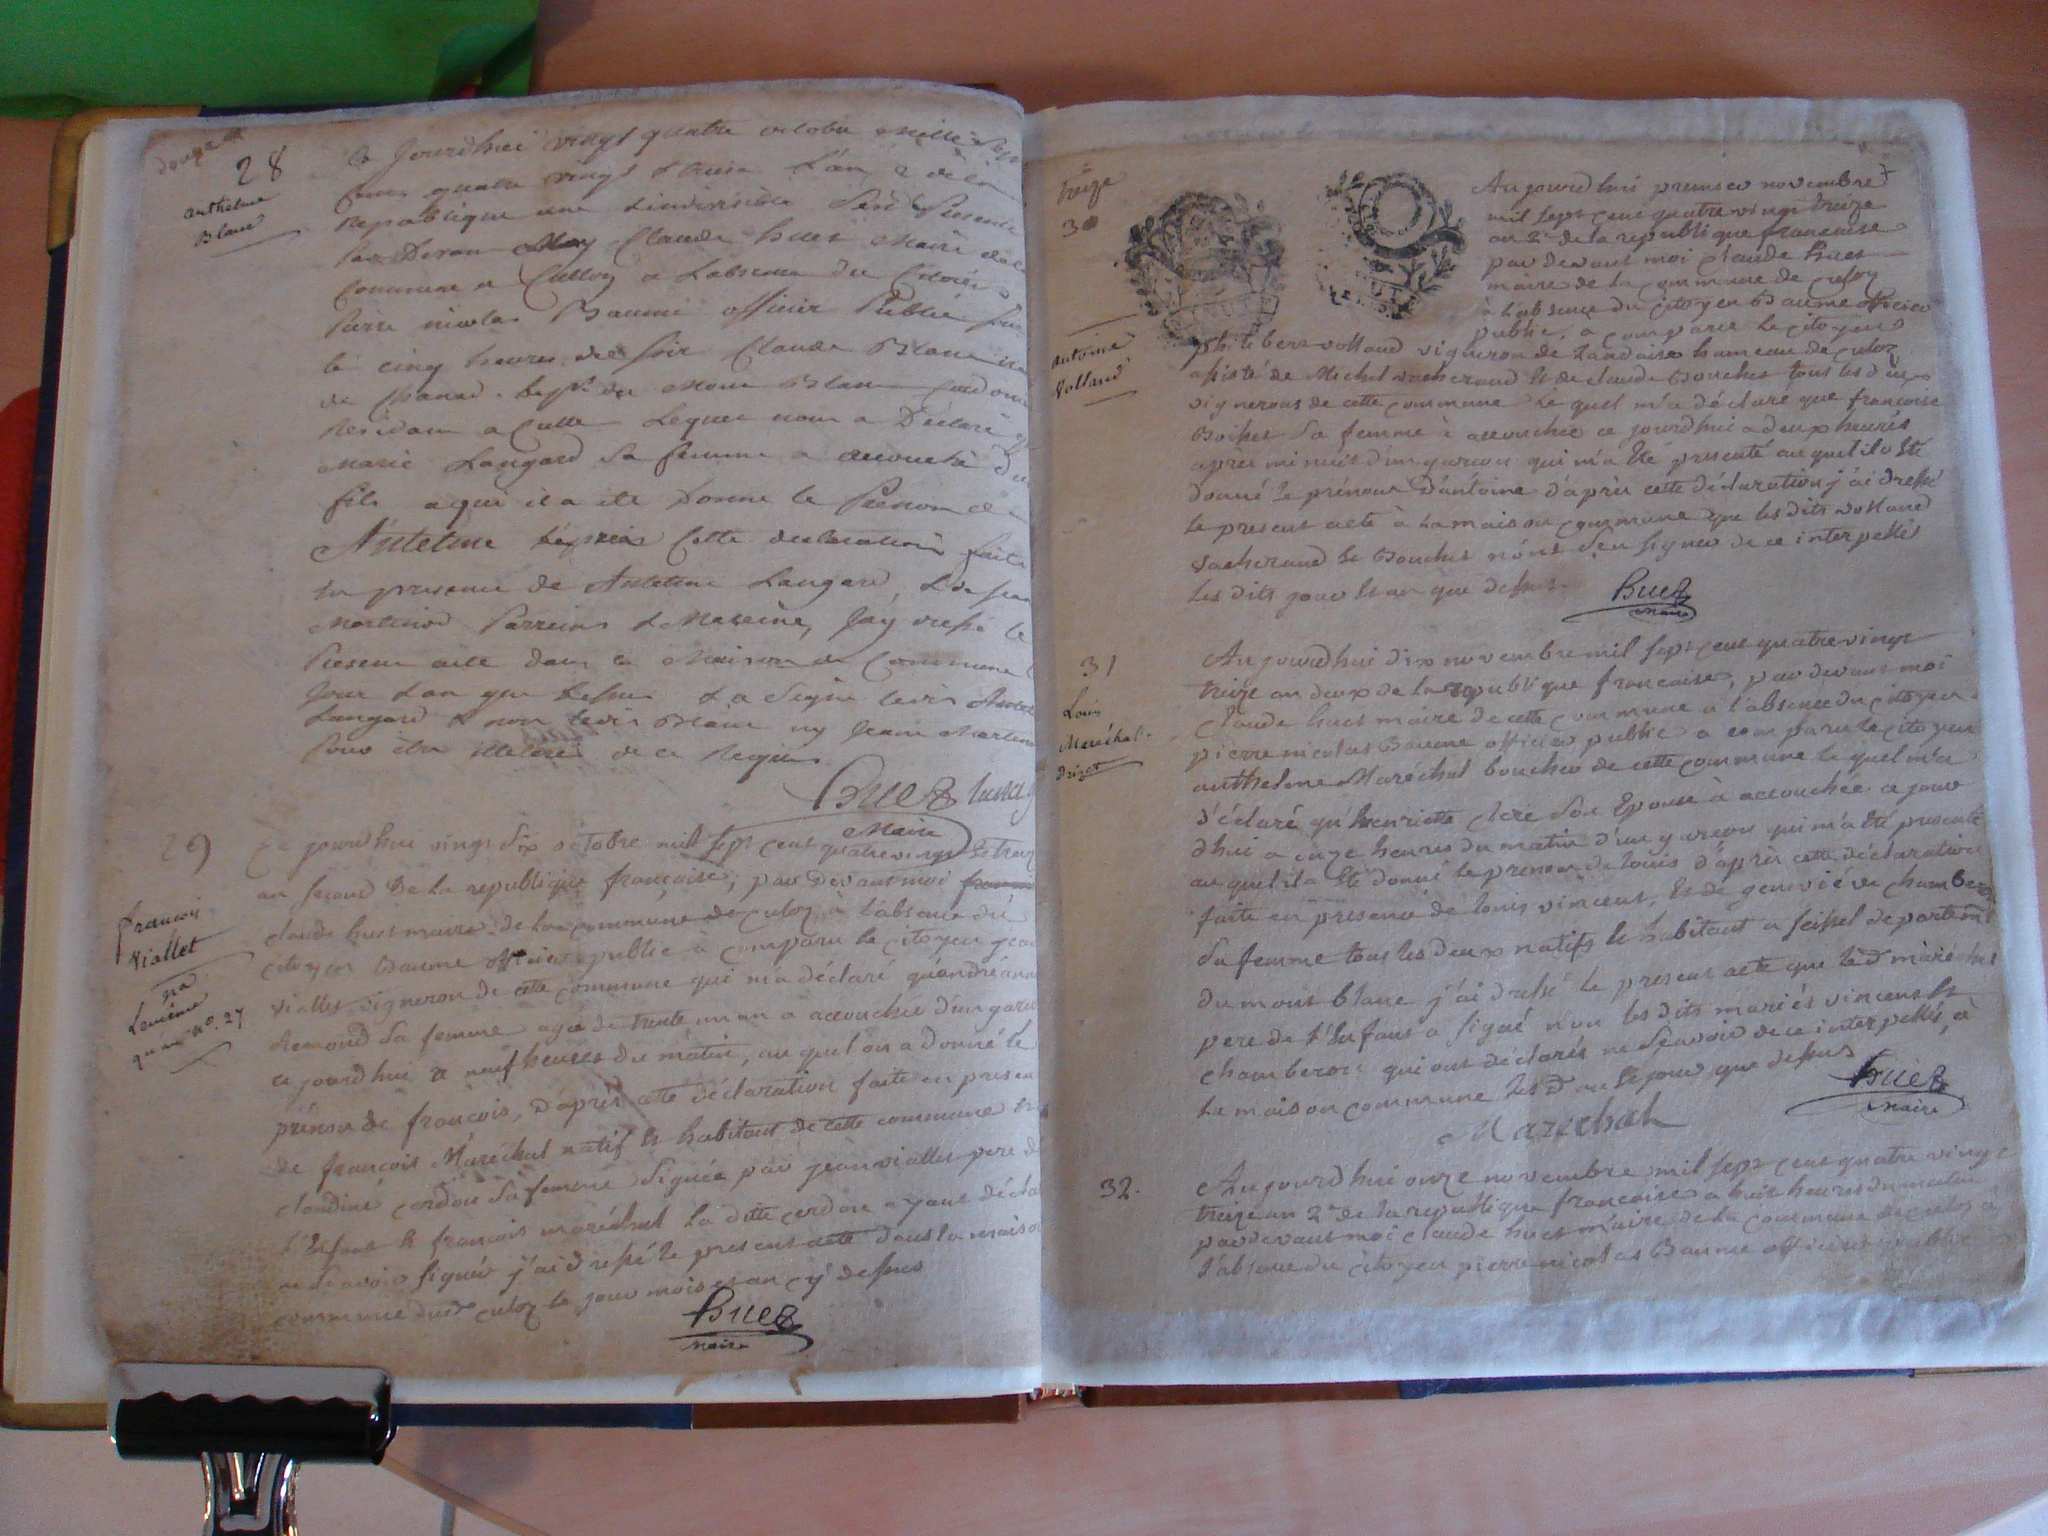 douze
28
anthelme
Blanc
Ce Jourdhui vingt quatre octobre mille sept
cens quatre vingt treize L'an 2 de la
Republique une
par Devan Moy Claude huet Maire de la
Commune a Culloz a Labsence du Citoien
Pierre nicolas Baume officier Public sur
le cinq heures de soir Claude Blanc
de Chanad. du Mon Blan
Residan a Culle Lequel nous a Declaré
Marie Langard Sa femme a accouché d'un
fils a qui il a été donné le Prenom de
Antelme D'aprés Cette declaration faite
En presence de Antelme Langard,
Martinod Parreins & Mareine, Jay dressé le
Present acte dans la Maison de Commune
Jour & an que dessus & a Signé
Langard & non Blanc ny Jeane Martinod
Pour être illeteré de ce Requis
Buez
Maire
29
francois
Viallet
na
Levième
que no. 27
Ce jourdhui vingt six octobre mil sept cens quatre vingt et treize
an second de la republique françoise, par devant moi
claude huet maire de la commune de culoz, à l'absence du
citoyen Baume officier public à comparu le citoyen jean
viallet vigneron de cette commune qui m'a déclaré qu'andréanne
Remond sa femme agée de trente un an a accouchée d'un garçon
ce jourdhui a neuf heures du matin, au quel on a donné le
prénom de françois, d'après cette déclaration faite en presence
de françois Maréchal natif et habitant de cette commune
claudine cerdon sa femme Signée par jean viallet pere de
l'Enfant et francois maréchal la dite cerdon ayant déclaré
ne Scavoir signer j'ai dressé le present acte dans la maison
commune dudt culoz le jour mois et an cy dessus
Buez
maire
treize
30
antoine
Volland
Aujourd'hui premier novembre
mil sept cent quatre vingt treize
an 2e de la republique francaise
par devant moi Claude huet
maire de la commune de culoz
à l'absence du citoyen Baume officier
public, a comparu le citoyen
philibert volland vigneron de Landaise hameau de culoz
assisté de Michel vacherand et de claude Bouchet tous les deux
vignerons de cette commune le quel m'a déclaré que françoise
sa femme à accouchée ce jourdhui a deux heures
après minuit d'un garcon qui m'a été presenté au quel il a été
donné le prénom d'antoine d'après cette déclaration j'ai dressé
le present acte à la maison commune que les dits volland
vacherand et Bouchet n'ont sçu signer de ce interpellés
les dits jour et an que dessus.
Buez
maire
31
Louis
Maréchal
Aujourdhui dix novembre mil sept cent quatre vingt
treize an deux de la republique francaise, par devant moi
Claude huet maire de cette commune a l'absence du citoyen
pierre nicolas Baume officier public a comparu le citoyen
anthelme Maréchal boucher de cette commune le quel m'a
déclaré qu'henriette clere son Epouse à accouchée ce jour
dhui a onze heures du matin d'un garcon qui m'a été presenté
au quel il a été donné le prenom de louis d'après cette déclaration
faite en presence de louis vincent, Et de geneviéve chamberoz
sa femme tous les deux natifs et habitant a seissel departemt
du mont blanc j'ai dressé le present acte que led maréchal
pere de l'Enfant a signé non les dits mariés vincent et
chamberoz qui ont déclarés ne Sçavoir de ce interpellés, à
la maison commune les d an et jour que dessus
Buez
maire
Marechal
32.
Aujourdhui onze novembre mil sept cent quatre vingt
treize an 2e de la republique francaise a huit heures du matin
par devant moi claude huet maire de la commune de culoz a
l'absence du citoyen pierre nicolas Baume officier public